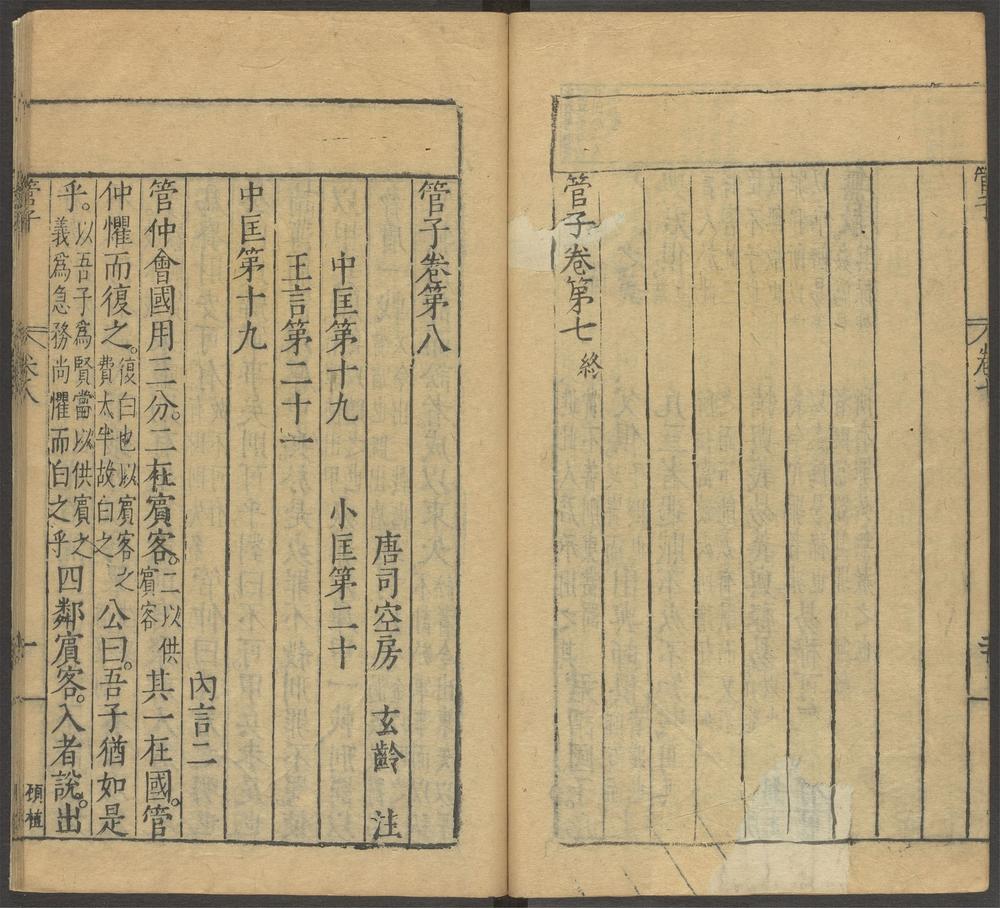 管子
卷七
管子卷第七 終
管子卷第八
唐司空房 玄齡 注
中匡第十九 小匡第二十
王言第二十一
中匡第十九
內言二
管仲會國用三分。二在賓客。二以供賓客 其一在國。管
仲懼而復之。復白也以賓客之費太半故白之 公曰。吾子猶如是
乎。以吾子為賢當以供賓之義爲急務尚懼而白之乎 四鄰賓客。入者說。出
管子
卷八
一
顧植